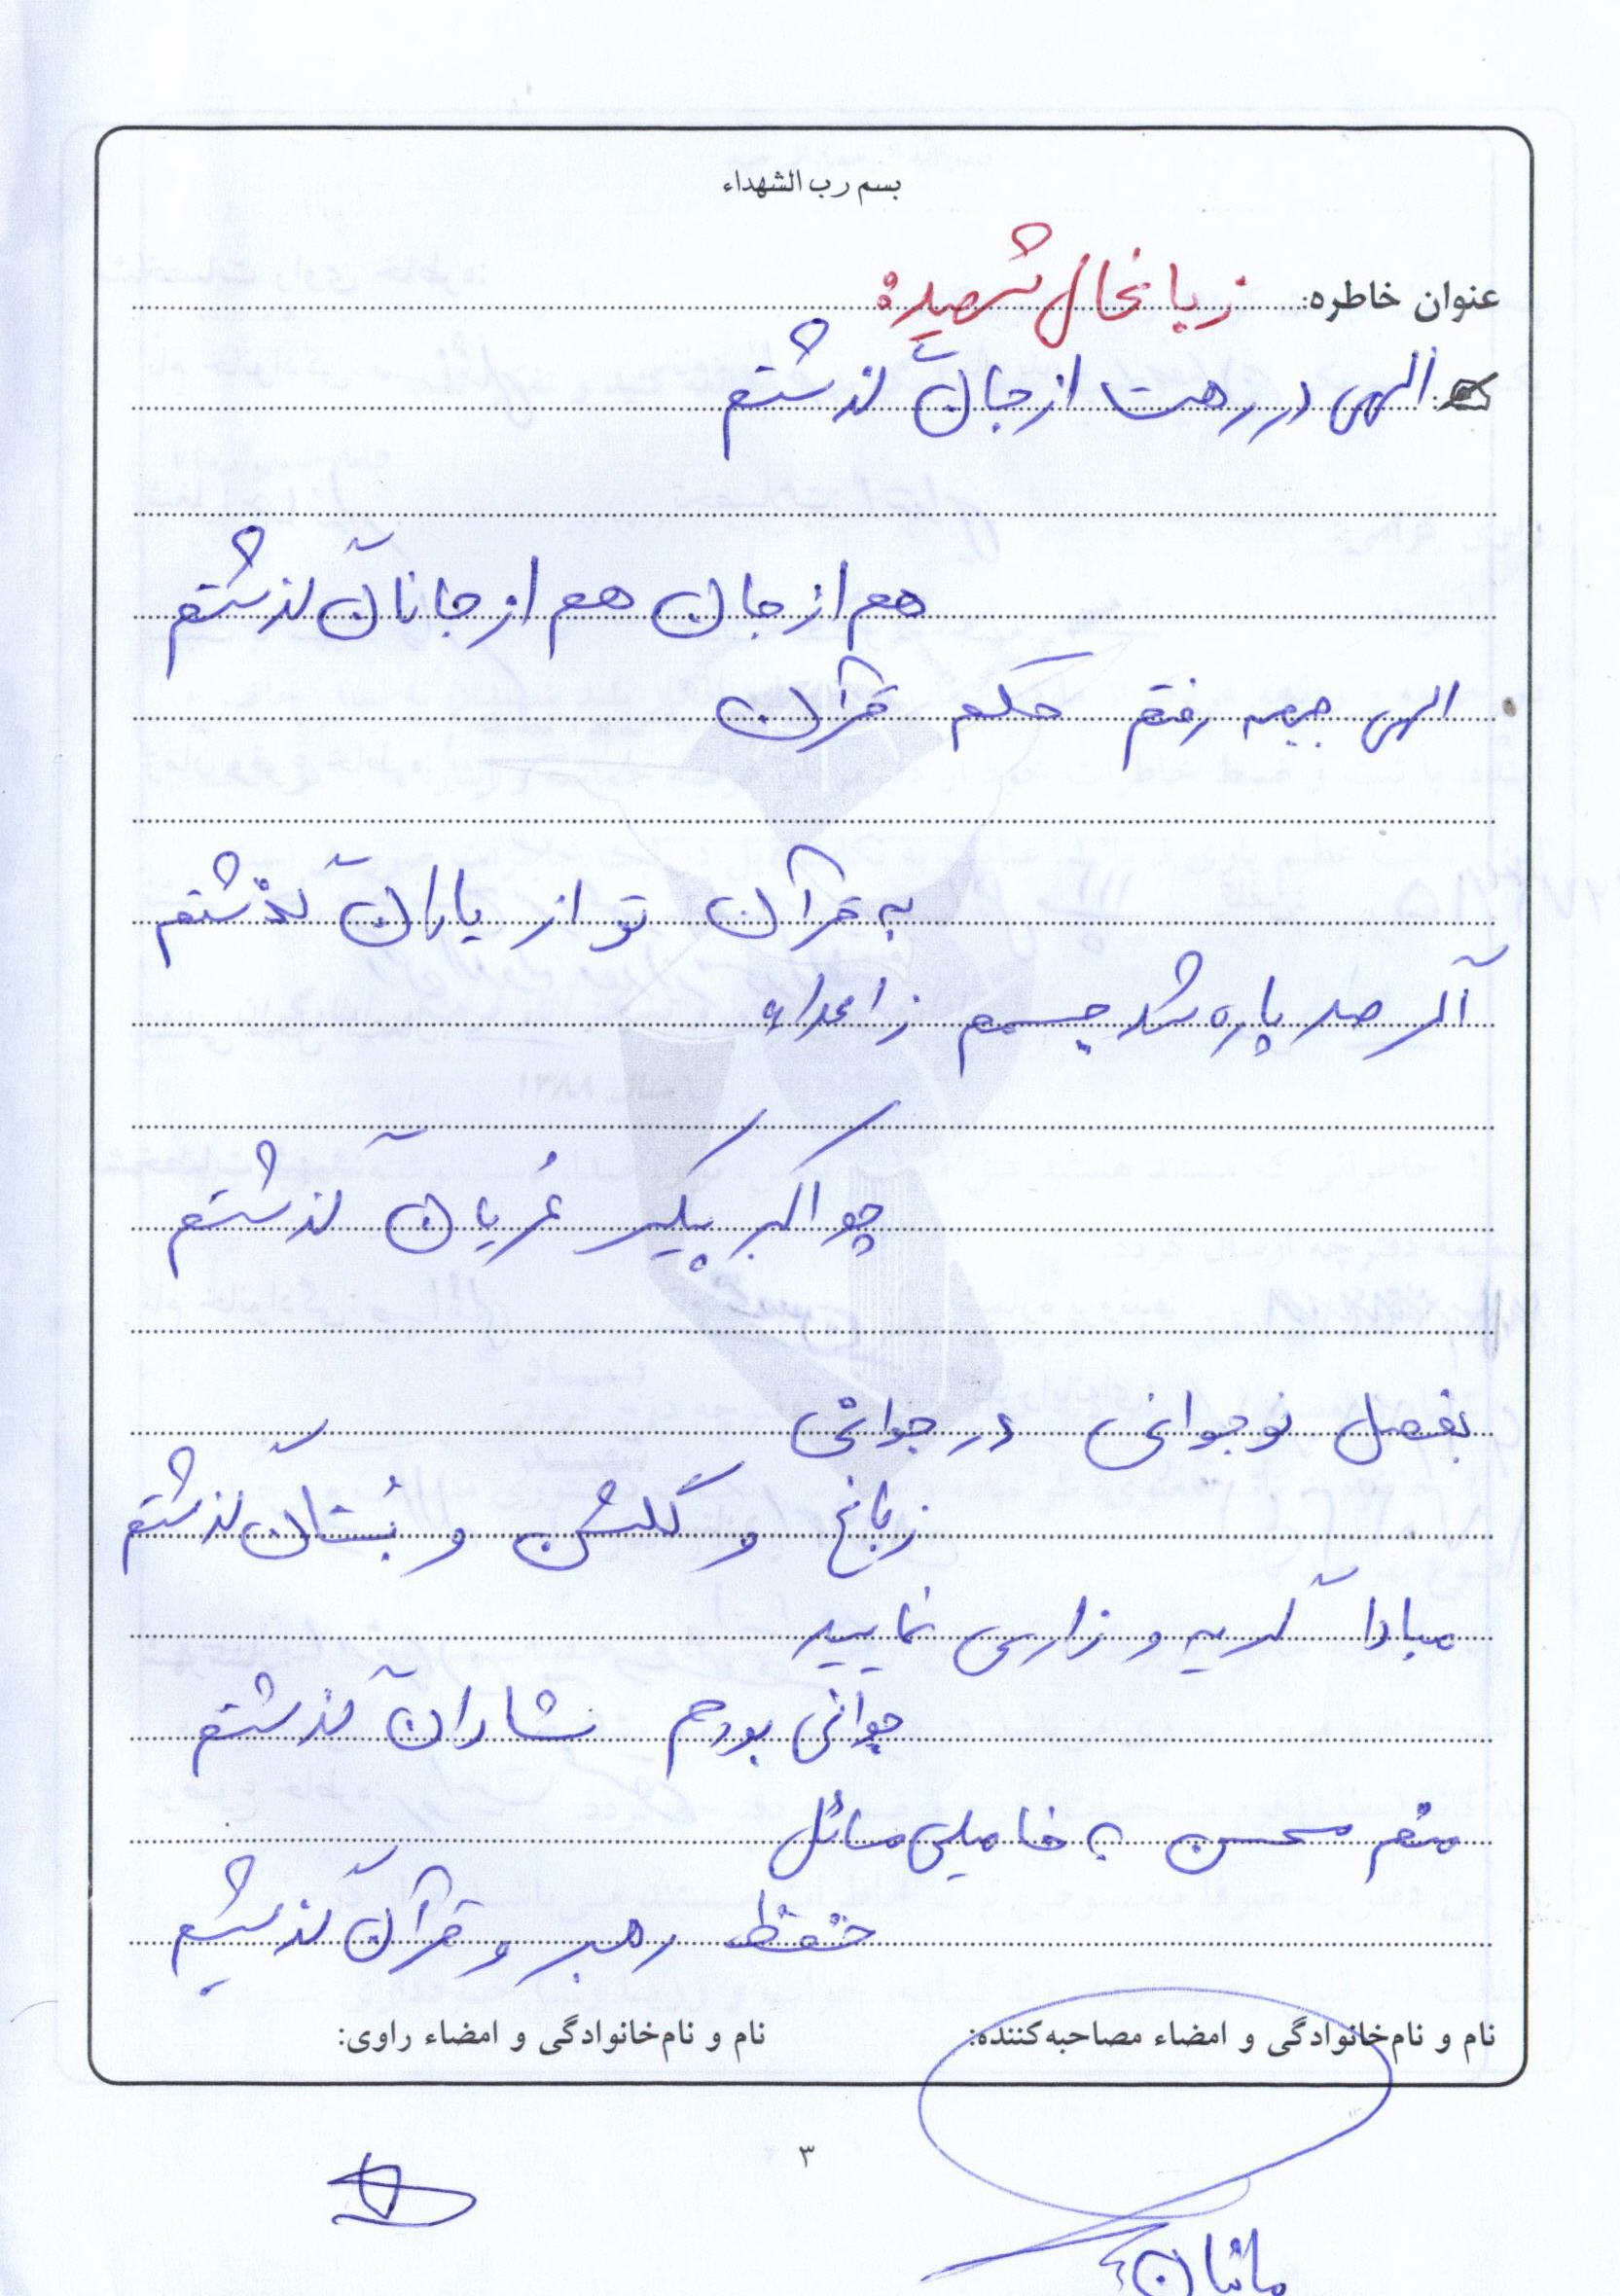 بسم رب الشهداء
عنوان خاطره: زبانحال شهید:
الهی در رهت از جان گذشتم
هم از جان هم از جانان گذشتم
الهی جبهه رفتم حکم قرآن
به قرآن تو از یاران گذشتم
اگر صد پاره شد جسمم ز اعداء
چو اکبر پیکر عُریان گذشتم
بفصل نوجوانی در جوانی
ز باغ و گلشن و بُستان گذشتم
مبادا گریه و زاری نمایید
جوانی بودم شادان گذشتم
منم محسن به فامیلی مسائل
حفظ رهبر و قرآن گذشتم
نام و نام‌خانوادگی و امضاء مصاحبه‌کننده: نام و نام‌خانوادگی و امضاء راوی:
۳